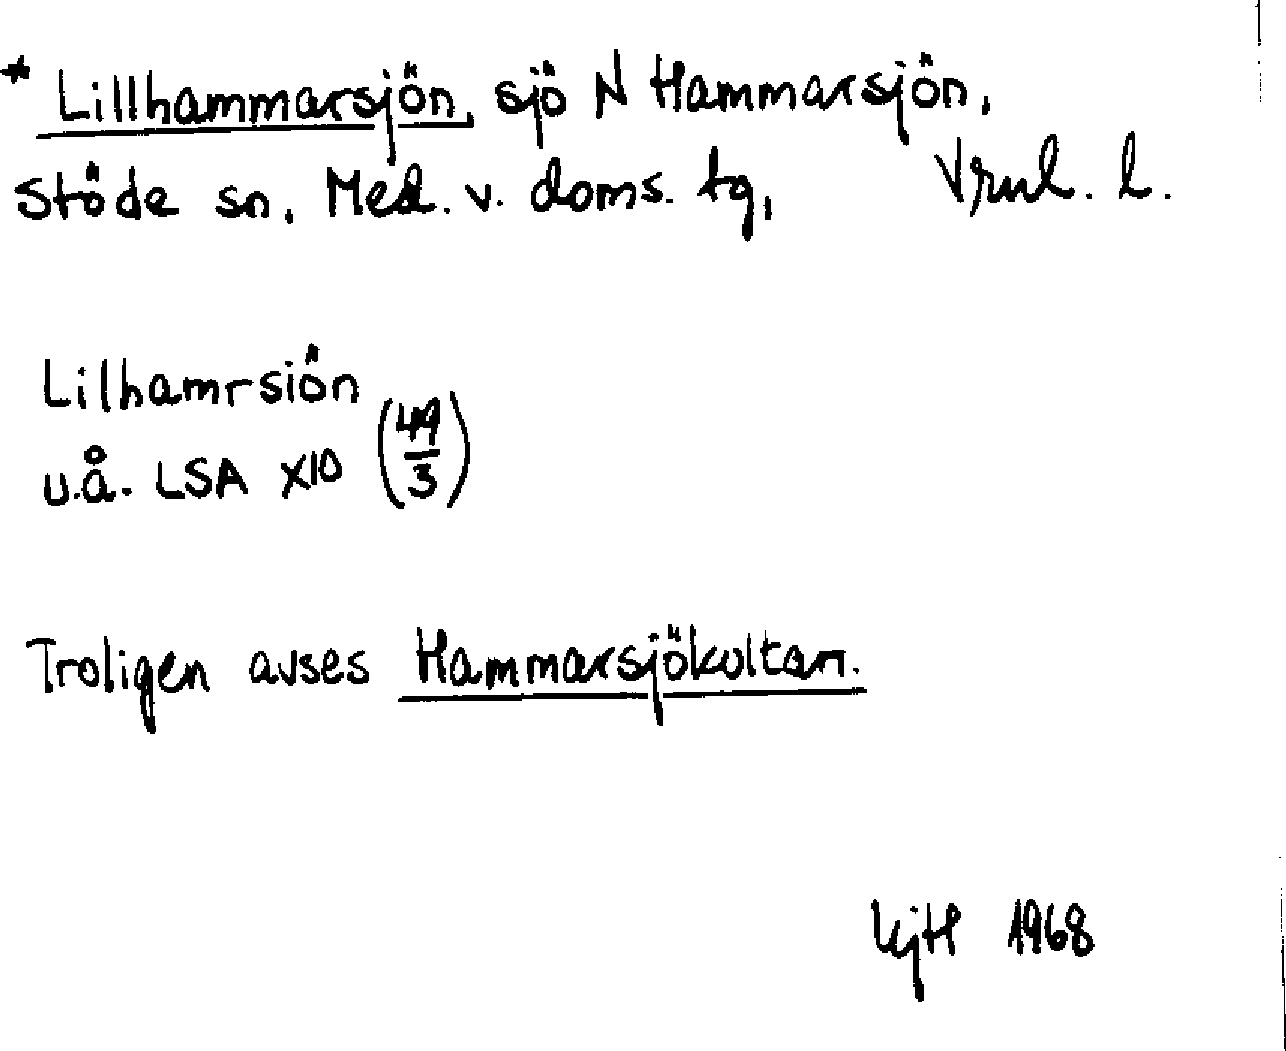 * Lillhammarsjön, sjö N Hammarsjön,
Stöde sn. Med. v. doms. tg, Vrnl. l.
Lilhamrsiön
u.å. LSA X10 (49/3)
Troligen avses Hammarsjökultan.
KjH 1968